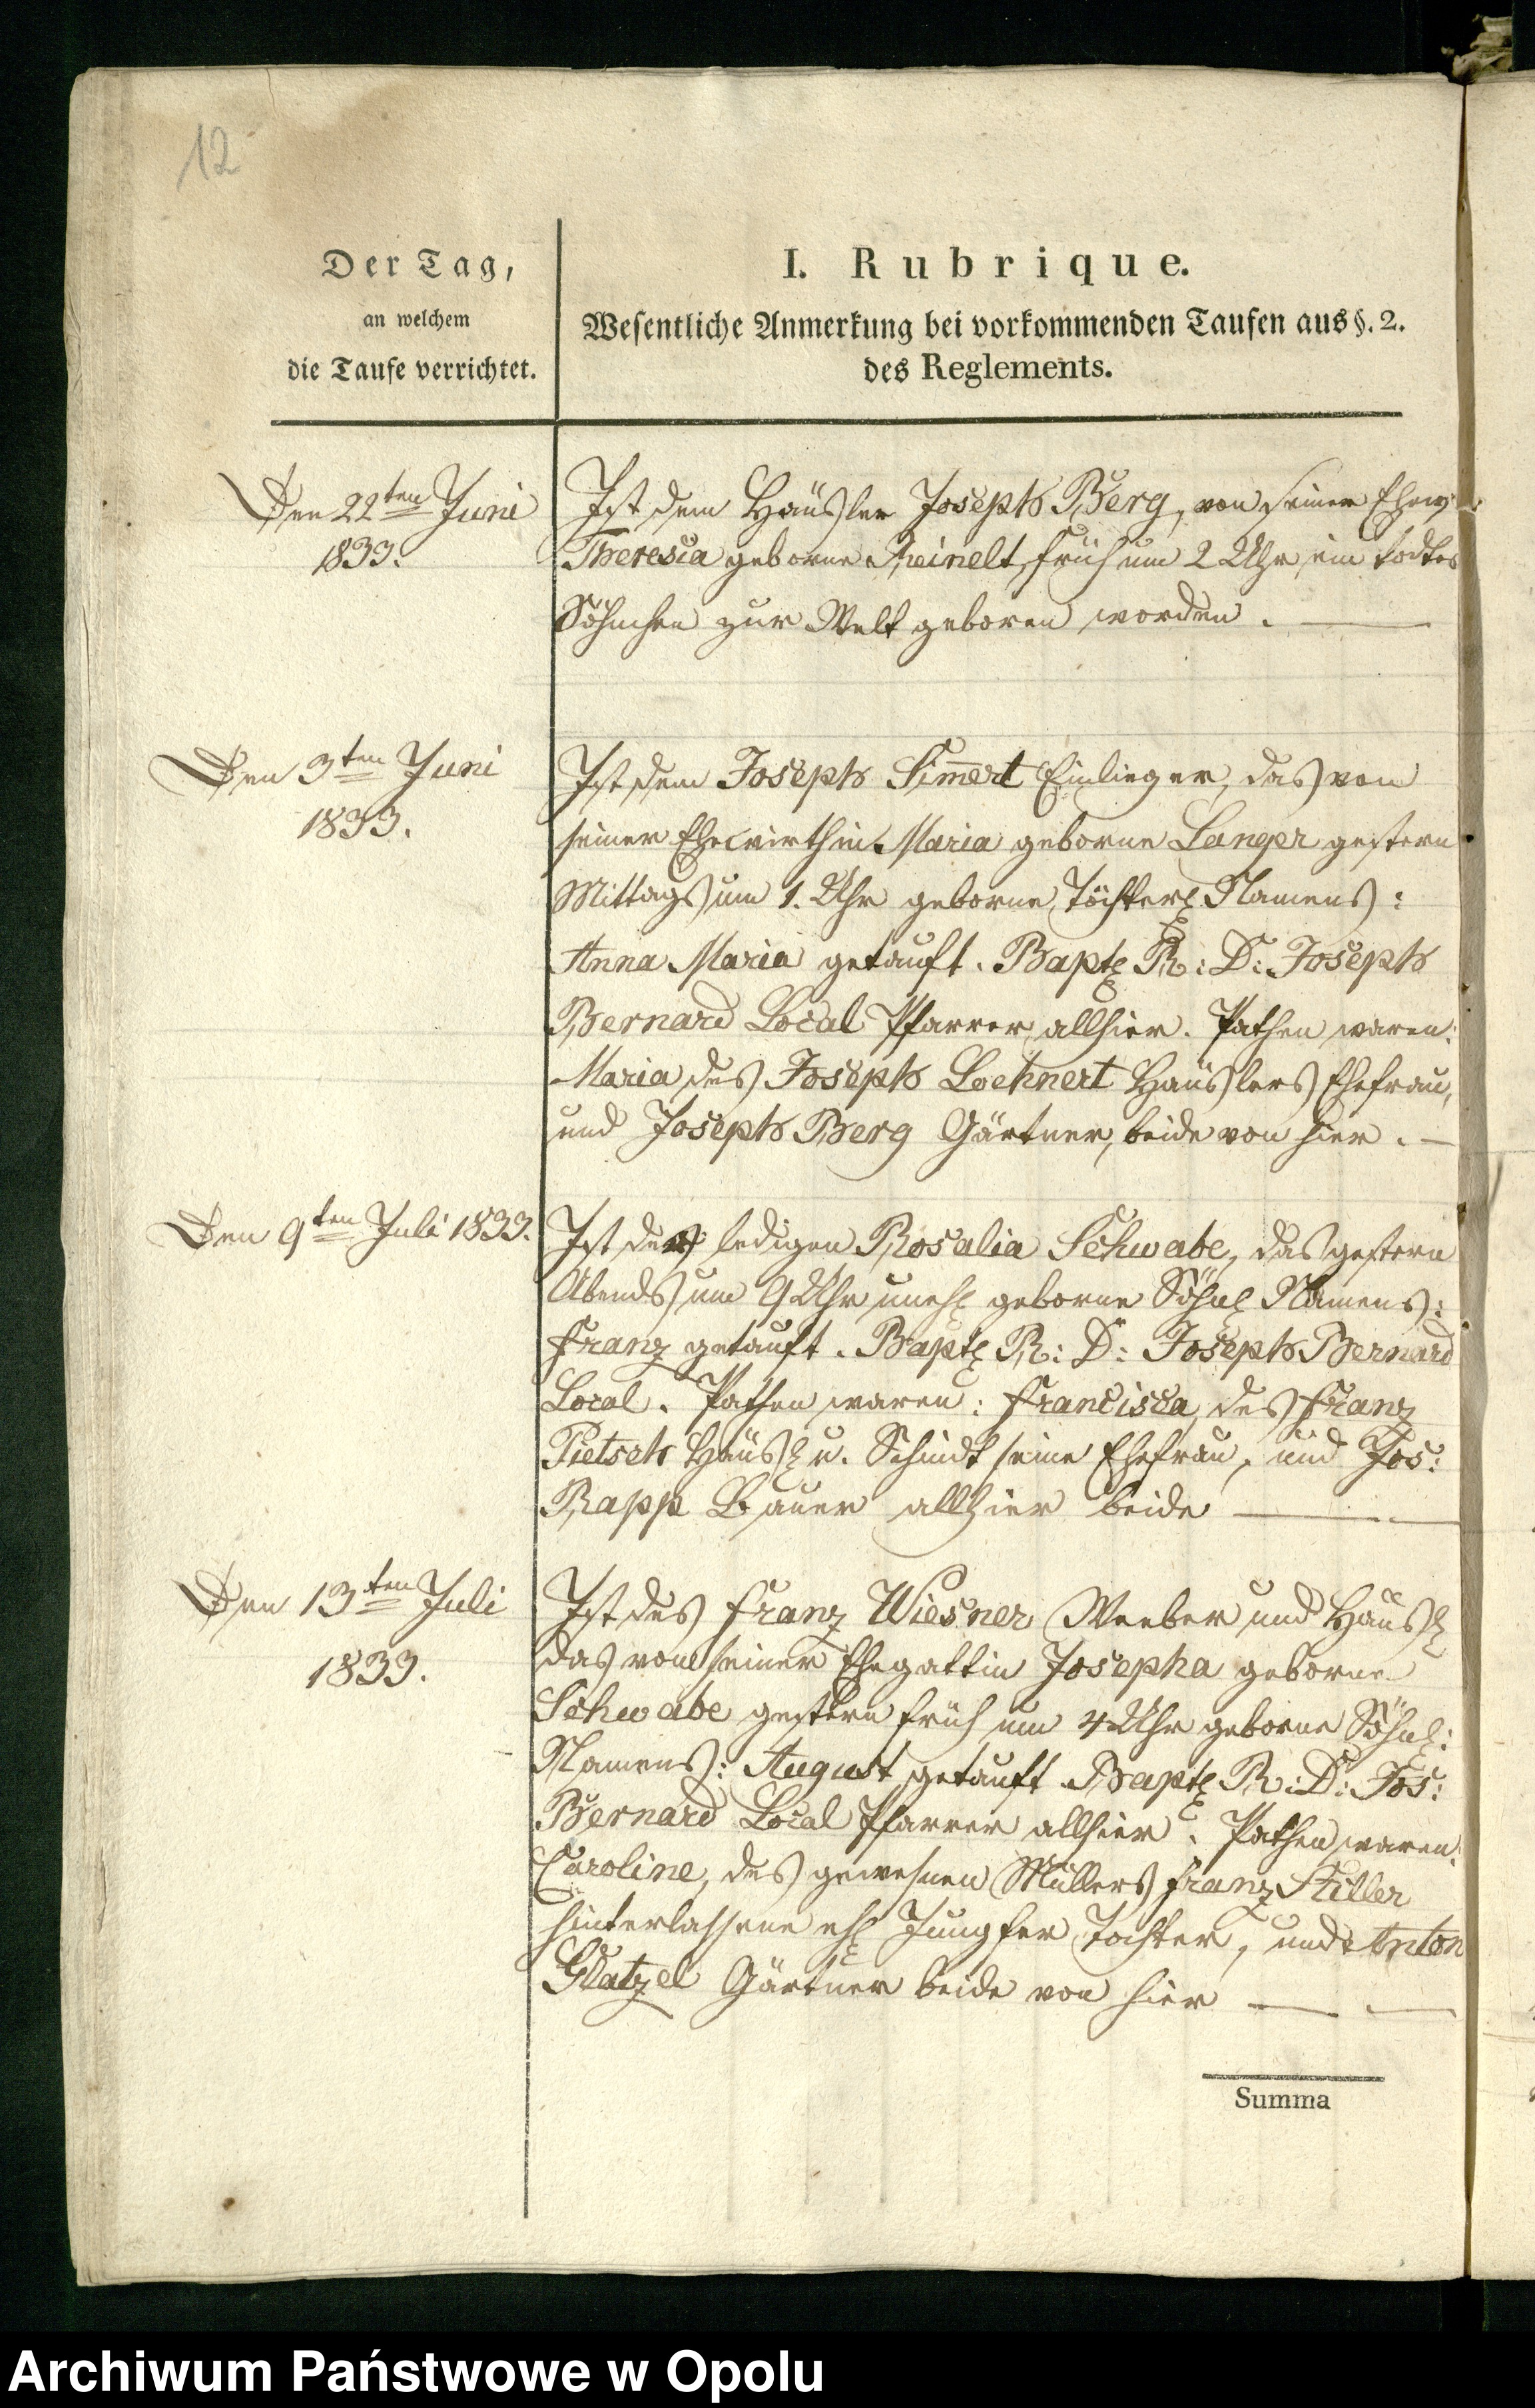 12
Der Tag,
an welchem
die Taufe verrichtet.
I. Rubrique.
Wesentliche Anmerkung bei vorkommenden Taufen aus §. 2.
des Reglements.
Den 22ten Juni
1833.
Ist dem Häusler Joseph Berg, von seiner Ehew:
Theresia geborne Reinelt, früh um 2 Uhr ein todtes
Söhnchen zur Welt geboren worden. —
Den 3ten Juni
1833.
Ist dem Joseph Sim̄ert Einlieger, das von
seiner Ehewirthin Maria geborne Langer gestern
Mittags um 1. Uhr geborne Töchterl Namens:
Anna Maria getauft. Bapt R: D: Joseph
Bernard Local Pfarrer allhier. Pathen waren:
Maria des Joseph Loehnert Häuslers Ehefrau,
und Joseph Berg Gärtner, beide von hier. —
Den 9ten Juli 1833.
Ist der ledigen Rosalia Schwabe, das gestern
Abends um 9 Uhr unehl geborne Söhnl Namens:
Franz getauft. Bapt R: D: Joseph Bernard
Local. Pathen waren: Francisca, des Franz
Pietsch Häusl u. seine Ehefrau, und Jos:
Rapp Bauer allhier beide —
Den 13ten Juli
1833.
Ist des Franz Wiesner Weeber und Häusl
das von seiner Ehegattin Josepha geborne
Schwabe gestern früh um 4 Uhr geborne Söhnl:
Namens: August getauft Bapt R: D: Jos:
Bernard Local Pfarrer allhier. Pathen waren:
Caroline, des gewesnen Müllers Franz Stiller
hinterlassene ehl Jungfer Tochter, und Anton
Glatzel Gärtner beide von hier —
Summa
Archiwum Państwowe w Opolu